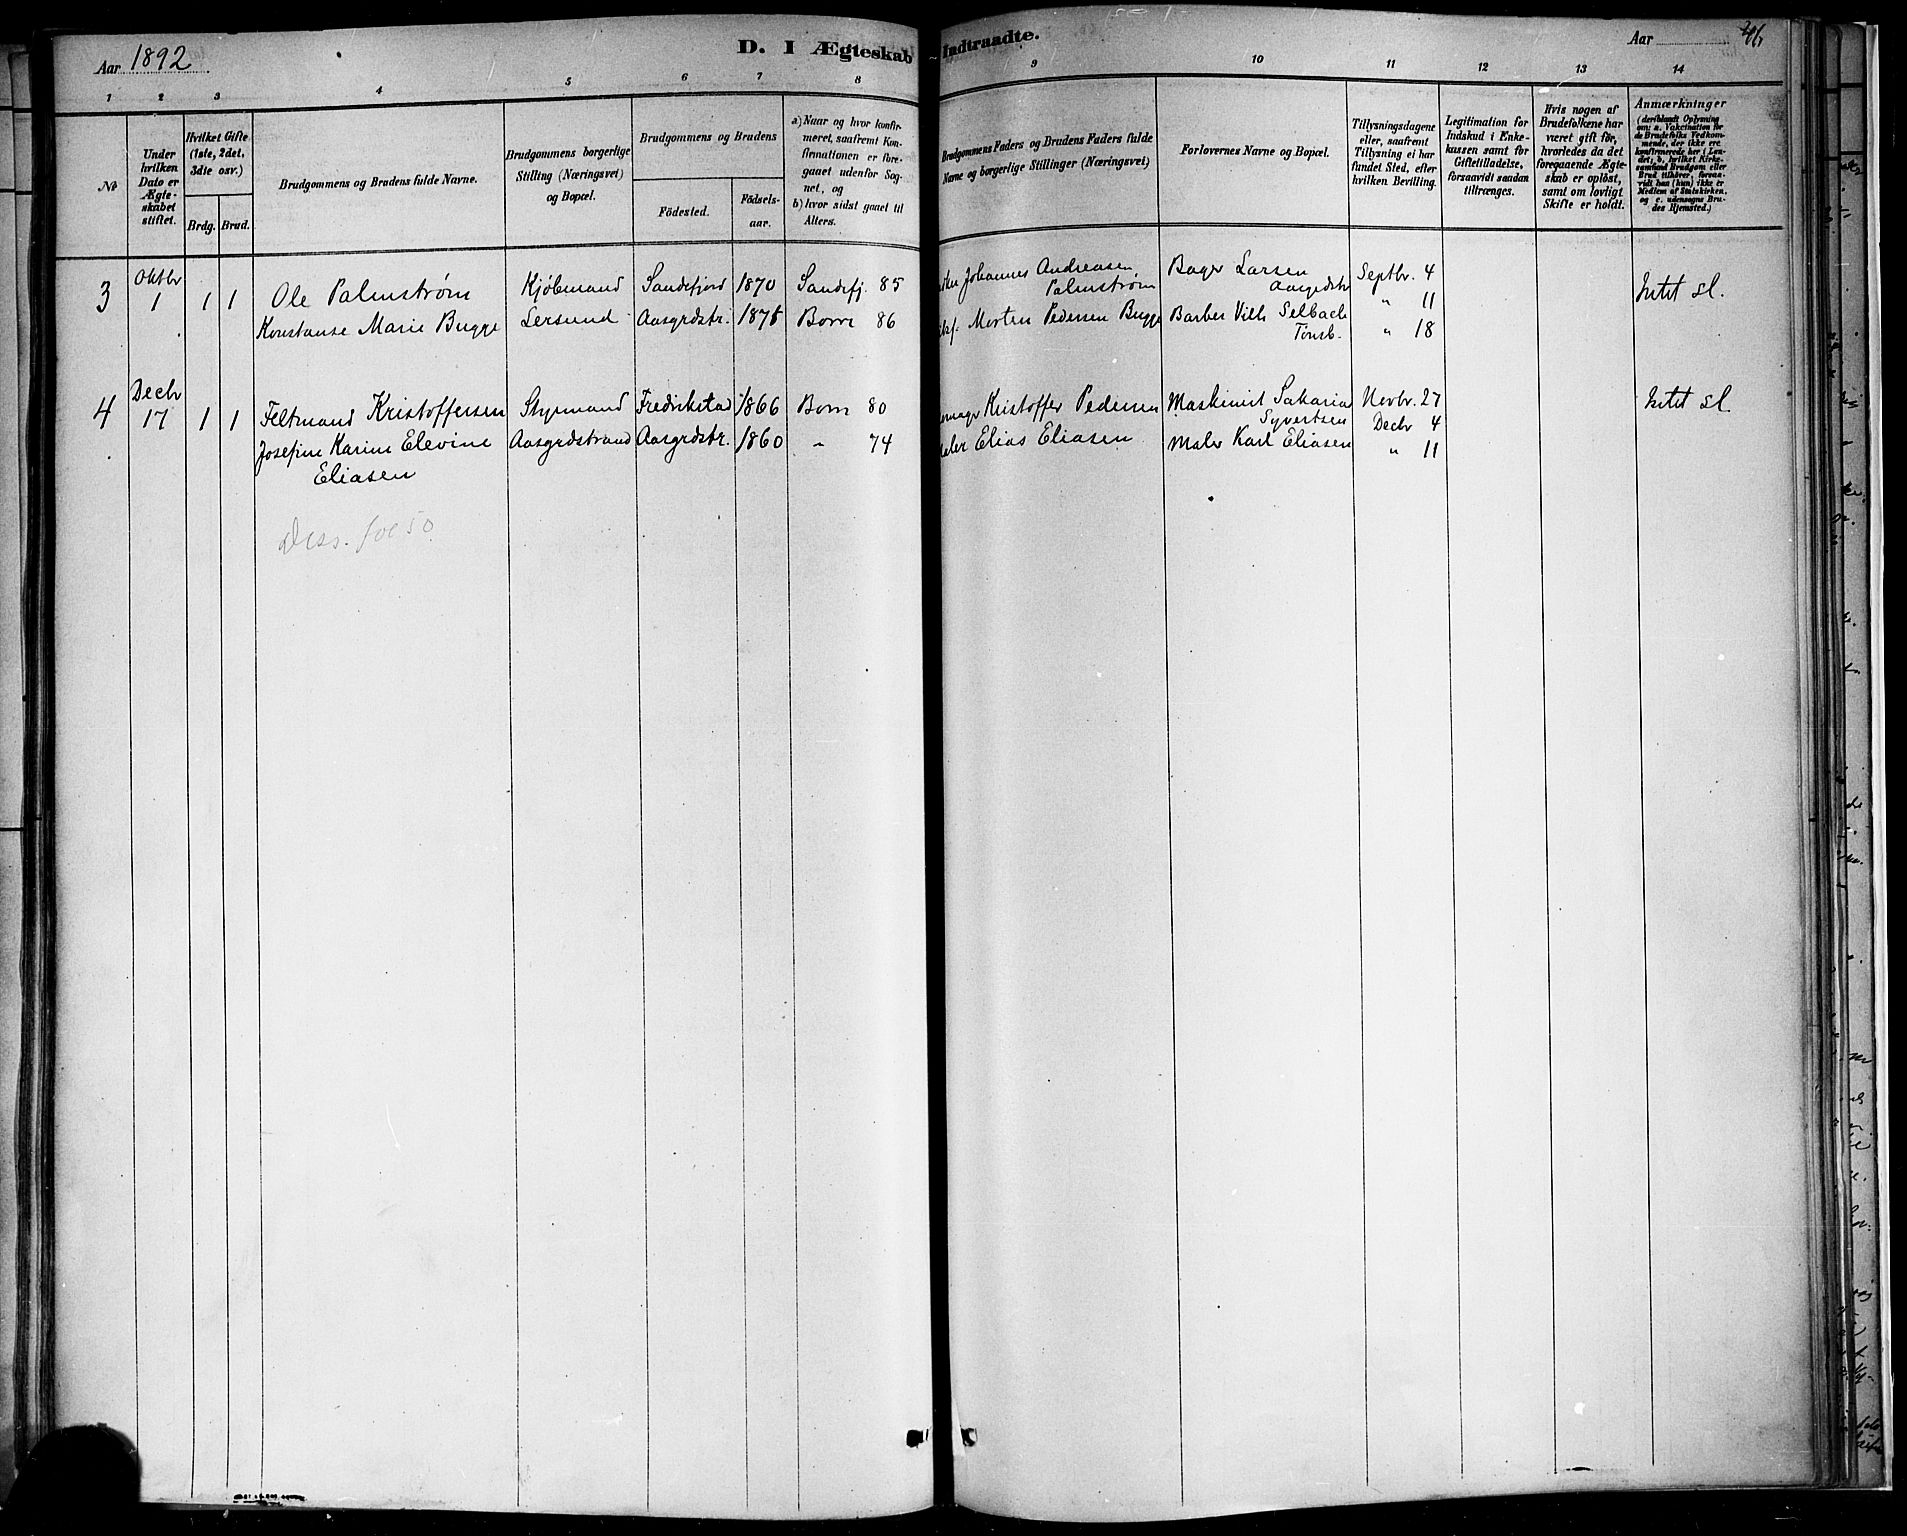 D. I Ægteskab Indtraadte.
Aar 1892
Aar
1 2 3 4 5 6 7 8 9 10 11 12 13 14
№
Under hvilken Dato er Ægteskabet stiftet.
Hvilket Gifte (1ste, 2det, 3die osv.)
Brdg. Brud.
Brudgommens og Brudens fulde Navne.
Brudgommens borgerlige Stilling (Næringsvei) og Bopæl.
Brudgommens og Brudens
Födested.
Födselsaar.
a) Naar og hvor konfirmeret, saafremt Konfirmationen er foregaaet udenfor Sognet, og
b) hvor sidst gaaet til Alters.
Brudgommens Faders og Brudens Faders fulde Navne og borgerlige Stillinger (Næringsvei)
Forlovernes Navne og Bopæl.
Tillysningsdagene eller, saafremt Tillysning ei har fundet Sted, efter hvilken Bevilling.
Legitimation for Indskud i Enkekassen samt for Giftetilladelse, forsaavidt saadan tiltrænges.
Hvis nogen af Brudefolkene har været gift för, hvorledes da det foregaaende Ægteskab er oplöst, samt om lovligt Skifte er holdt.
Anmærkninger (deriblandt Oplysning om: a. Vakcination for de Brudefolks Vedkommende, der ikke ere konfirmerede her i Landet; b. hvilket Kirkesamfund Brudgom eller Brud tilhører, forsaavidt han (hun) ikke er Medlem af Statskirken, og c. udensogns Brudes Hjemsted.)
3 Oktbr 1 1 1 Ole Palmstrøm Kjøbmand Sandefjord 1870 Sandefj. 85 Johannes Andreasen Palmstrøm Bager Larsen Aasgrdstr Septbr. 4 Intet sl.
" 11
Konstanse Marie Bugge Lersund Aasgrdstr. 1871 Borre 86 Morten Pedersen Bugge Barber Vilh Selbach Tønsb. " 18
4 Decbr 17 1 1 Feltmand Kristoffersen Styrmand Fredrikstad 1866 Borre 80 Kristoffer Pedersen Maskinist Sakarias Syvertsen Novbr. 27 Intet sl.
Decbr 4
Josefine Karine Elevine Eliasen Aasgrdstrand Aasgrdstr. 1860 " 74 Elias Eliasen Maler Karl Eliasen " 11
Dess. fol 50